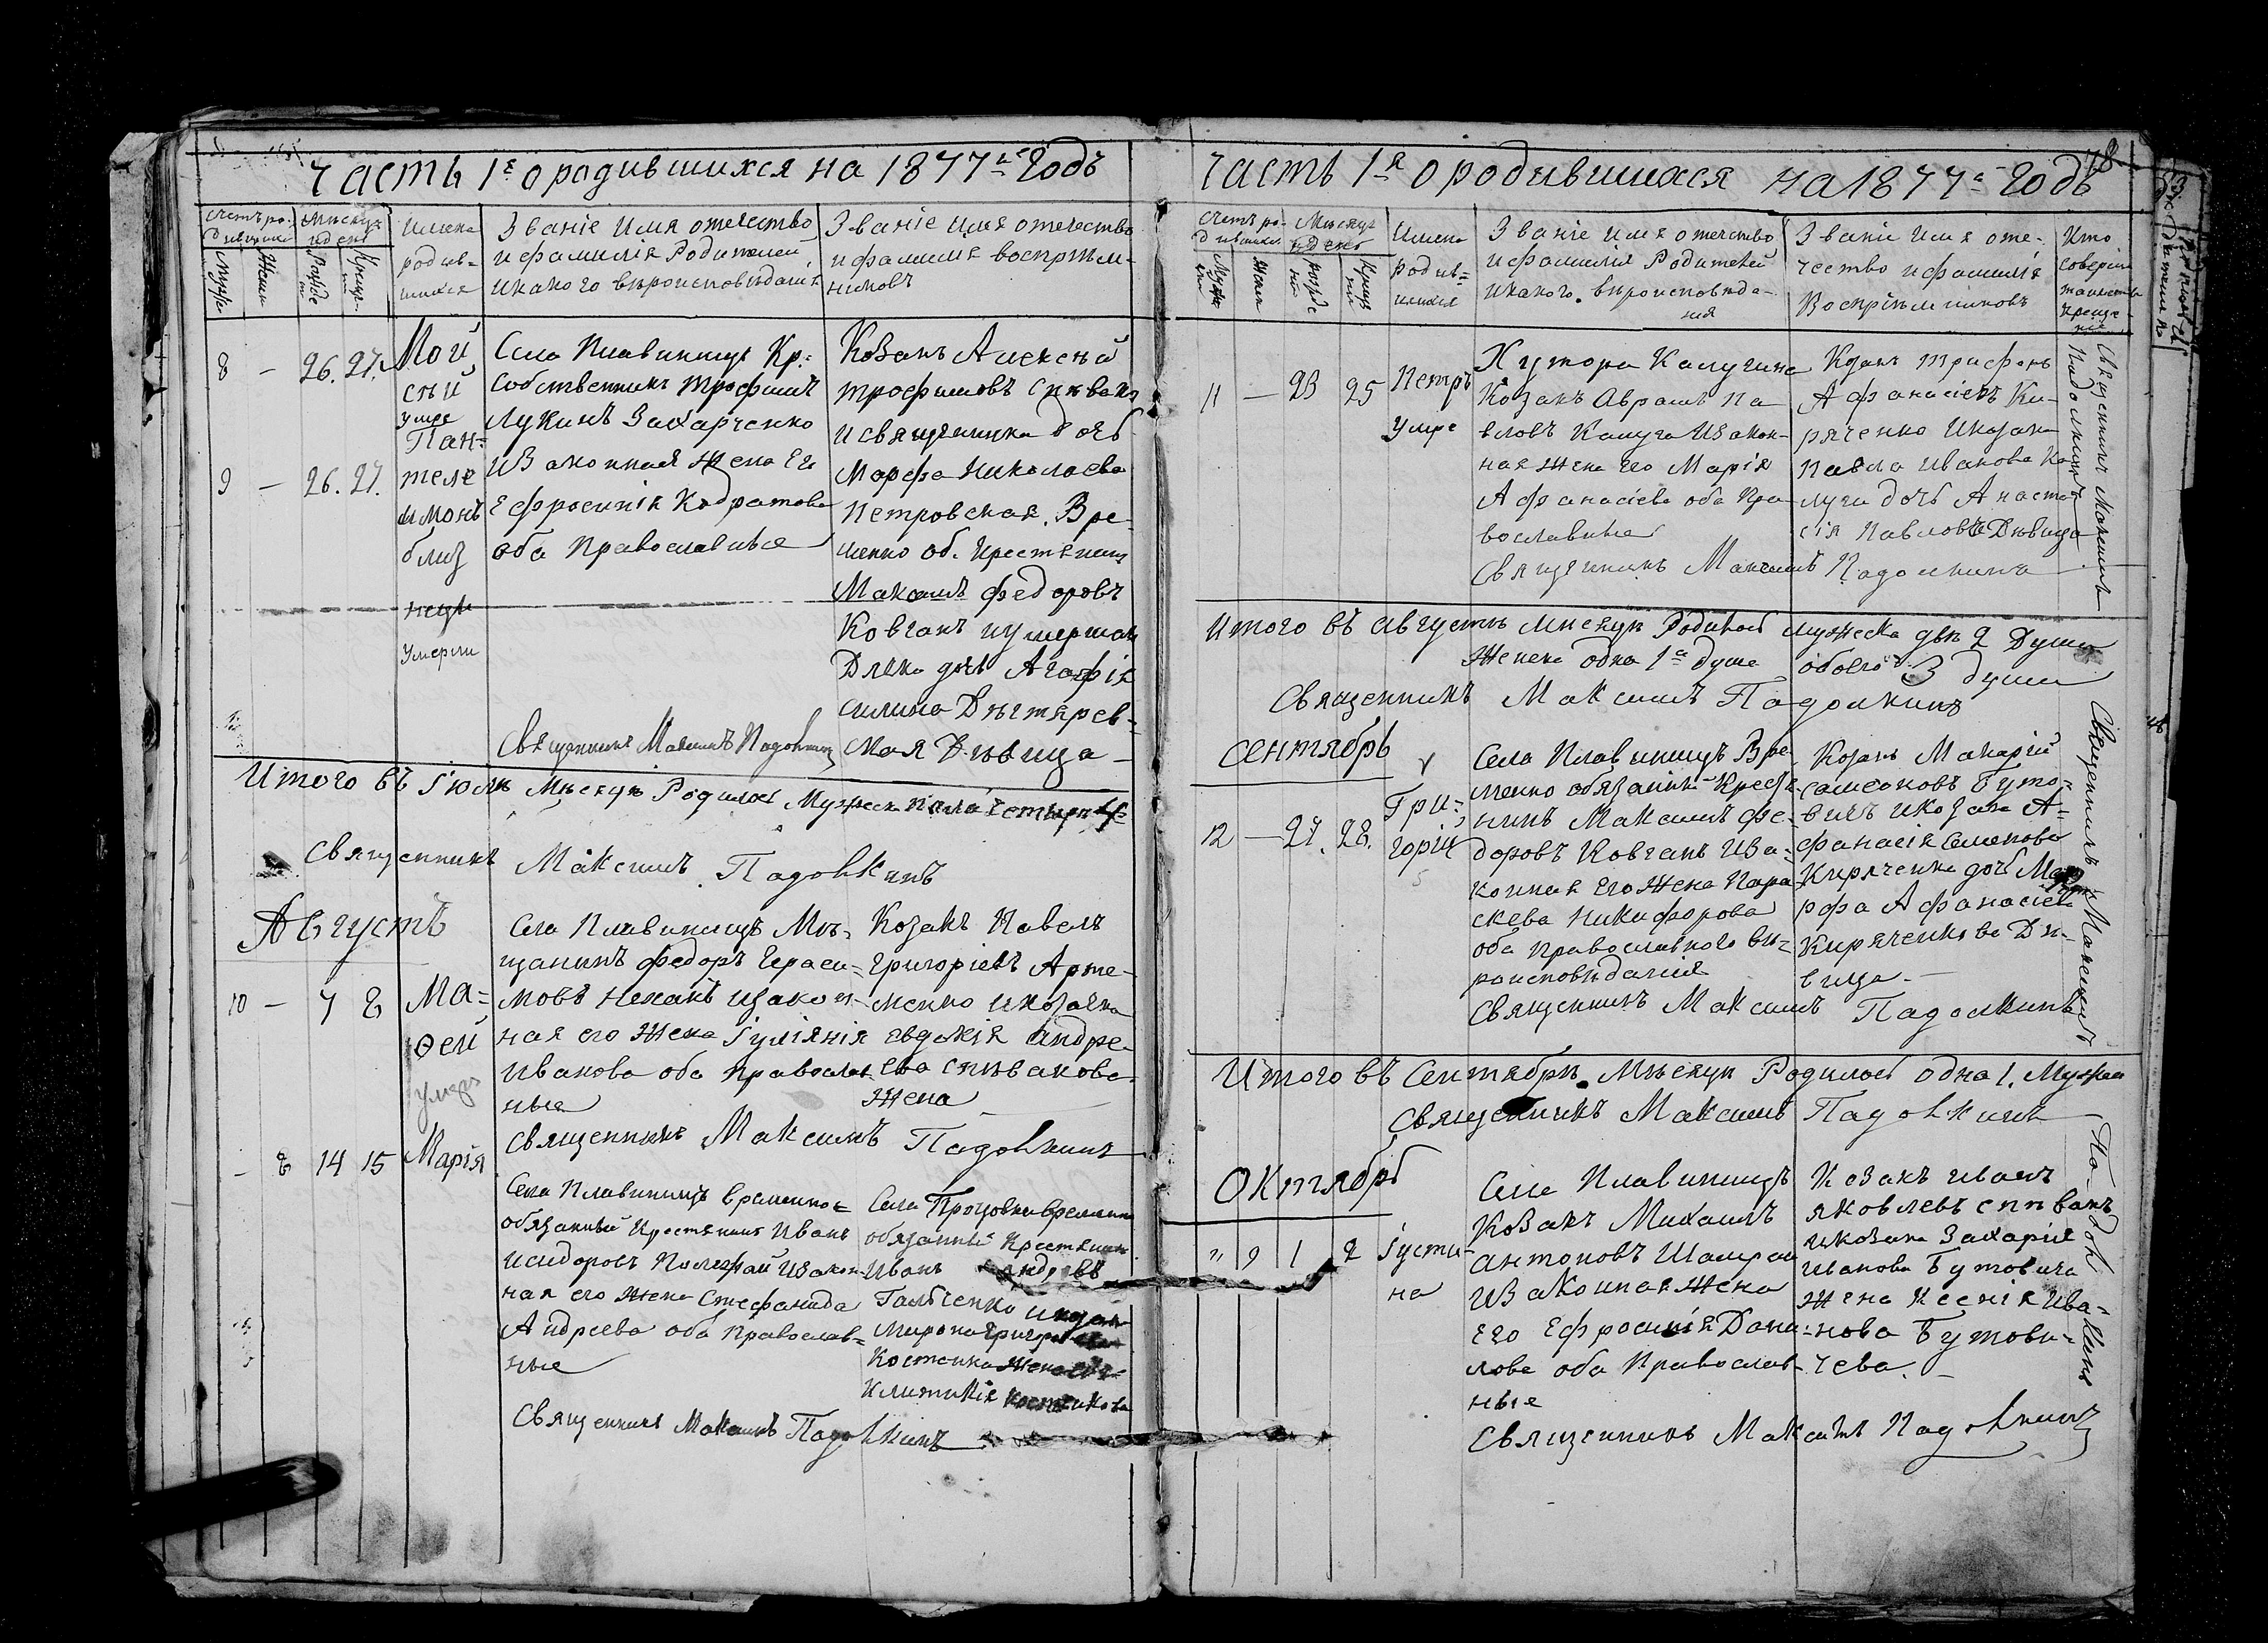 Часть 1я о родившихся на 1877й Годъ
Счетъ ро-
дившихся
Мѣсяцъ
и день
Имена
родив=
шихся
Званіе Имя отечество
и фамилія Родителей,
и какого вѣроисповѣданія
Званіе Имя отечество
и фамилія воспріем-
никовъ
8 – 26. 27.
Мой
сей
умре
9 – 26. 27.
Пан=
теле
имонъ
близ
нецы
умерли
Села Плавинищъ Кр:
собственникъ Трофимъ
Лукинъ Захарченко
и Законная Жена Его
Ефросинія Кодратова
оба Православные
Козакъ Алексей
Трофимовъ Спѣвакъ
и священника дочь
Марфа Николаева
Петровская. Вре-
менно об. Крестянинъ
Максимъ Федоровъ
Ковганъ
дочь Агафія
Дѣвица
Священникъ Максимъ Падолкинъ
Итого въ Іюлѣ Мѣсяцѣ Родилось Мужеска пола четыре 4
Священникъ Максимъ Падолкинъ
Августъ
10 – 7 8
Ма=
ѳей
умеръ
Села Плавинищъ Мѣ-
щанинъ Федоръ Гераси=
мовъ и закон-
ная его Жена Іуліянія
Иванова оба Православ
ные
Козакъ Павелъ
Григоріевъ Арте-
менко и козачка
Евдокія Андре-
ева Спѣвакова
Жена
Священникъ Максимъ Падолкинъ
– 8 14 15 Марія
Села Плавинищъ временно=
обязанный Крестянинъ Иванъ
Исидоровъ и закон-
ная его Жена Стефанида
Андреева оба Православ=
ные
Села Процовки временно
обязанный Крестянинъ
Иванъ
Галченко и козака
Мирона
Костенка Жена его
Священникъ Максимъ Падолкинъ
Часть 1-я о родившихся на 1877й Годъ
78
Счетъ ро-
дившихся
Мѣсяцъ
и день
Имена
родив=
шихся
Званіе имя отечество
и фамилія Родителей
и какого вѣроисповѣда-
нія
Званіе имя оте-
чество и фамилія
Воспріемниковъ
Кто
соверш
таинство
крещe-
нія
11 – 23 25
Петръ
умре
Хутора Калугина
Козакъ Аврамъ Па
вловъ Калуга и Закон-
ная Жена его Марія
Афанасіева оба Пра-
вославные
Козакъ Трифонъ
Афанасіевъ Ки-
ряченко и козака
Павла Иванова Ка
луги дочь Анаста
сія Павлова Дѣвица
Священникъ Максимъ Падолкинъ
Священникъ Максимъ Падолкинъ
Итого въ Августѣ Мѣсяцѣ Родилось мужеска двѣ 2 Души
Женска одна 1а душа обоего 3 души
Священникъ Максимъ Падолкинъ
Сентябрь
12 – 27. 28.
Гри=
горій
Села Плавинищъ Вре
менно обязанный Крестя-
нинъ Максимъ Фе-
доровъ Ковганъ и За-
конная его Жена Пара
скева Никифорова
оба Православнаго вѣ-
роисповѣданія
Козакъ Макарій
Самсоновъ Буто-
вичъ и козака А-
фанасія Семенова
Киряченка дочь Ма
рфа Афанасіева
Киряченкова Дѣ-
вица. –
Священникъ Максимъ Падолкинъ
Священникъ Максимъ
Падолкинъ
Итого въ Сентябрѣ Мѣсяцѣ Родилось одна 1. Мужска
Священникъ Максимъ Падолкинъ
Октябрь
" 9 1 2
Іусти-
на
Села Плавинищъ
Козакъ Михаилъ
Антоновъ Шамрай
и Законная Жена
Его Ефросинія Дани-
лова оба Православ-
ные
Козакъ Иванъ
Яковлевъ Спѣвакъ
и козака Захарія
Иванова Бутовича
Жена Ксенія Ива-
нова Бутови-
чева. –
Священникъ Максимъ Падолкинъ